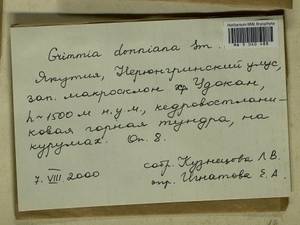 Grimmia donniana Sm.
Якутия, Нерюнгринский улус,
зап. макросклон хр Удокан,
h~1500 м н.у.м., кедровостлани-
ковая горная тундра, на
курумах. Оп. 8.
собр. Кузнецова Л.В.
7. VIII. 2000
опр. Игнатова Е.А.